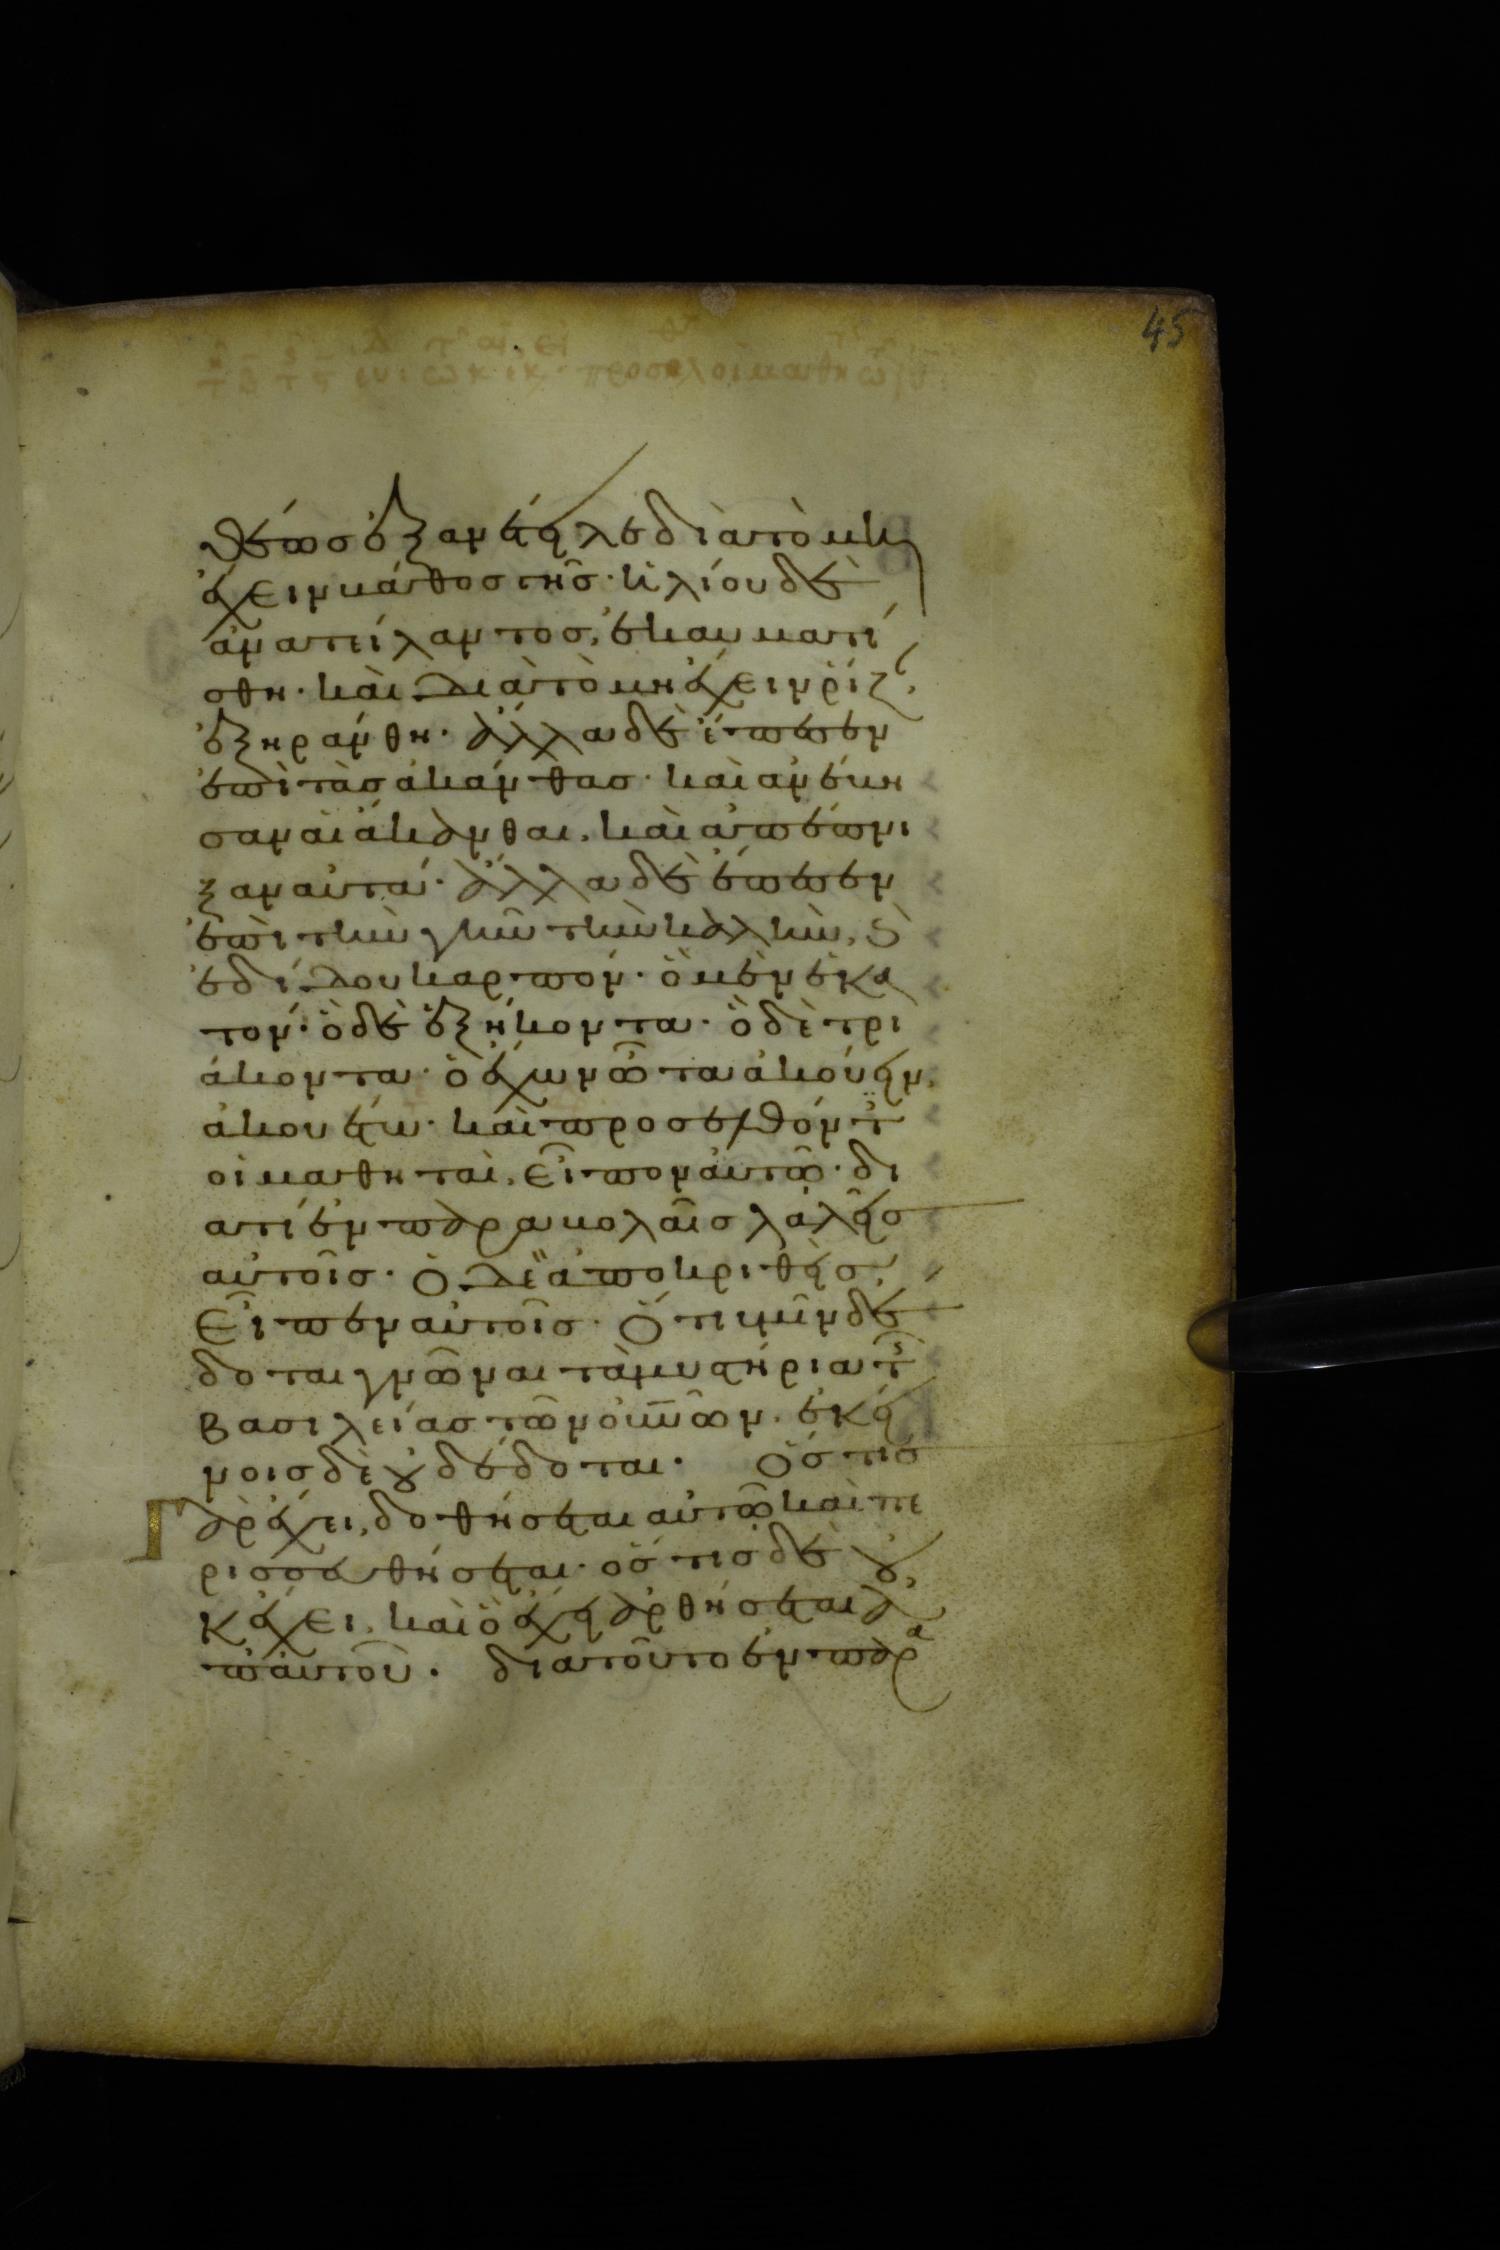 45
θέως ἐξανέτειλε διὰ τὸ μὴ
ἔχειν βάθος γῆς· ἡλίου δὲ
ἀνατείλαντος, ἐκαυματί
σθη· καὶ διὰ τὸ μὴ ἔχειν ῥίζ,
ἐξηράνθη· ἄλλα δὲ ἔπεσεν
ἐπὶ τὰς ἀκάνθας· καὶ ἀνέβη
σαν αἱ ἄκανθαι, καὶ ἀπέπνι
ξαν αὐτά· ἄλλα δὲ ἔπεσεν
ἐπὶ τὴν γῆν τὴν καλὴν, ϗ
ἐδίδου καρπόν· ὃ μὲν ἑκα
τόν· ὃ δὲ ἐξήκοντα· ὃ δὲ τρι
άκοντα· ὁ ἔχων ὦτα ἀκούειν,
ἀκουέτω· καὶ προσελθόντ
οἱ μαθηταὶ, εἶπον αὐτῶ· δι
ατί ἐν παραβολαῖς λαλεῖς
αὐτοῖς· ὁ δὲ ἀποκριθεὶς,
εἶπεν αὐτοῖς· ὅτι ὑμῖν δέ
δοται γνῶναι τὰ μυστήρια τ
βασιλείας τῶν οὐνῶν· ἐκεί
νοις δὲ οὐ δέδοται· ὅστις
γὰρ ἔχει, δοθήσεται αὐτῶ καὶ πε
ρισσευθήσεται· ὅστις δὲ οὐ
κ ἔχει, καὶ ὃ ἔχει ἀρθήσεται ἀ
π' αὐτοῦ· διατοῦτο ἐν παρα